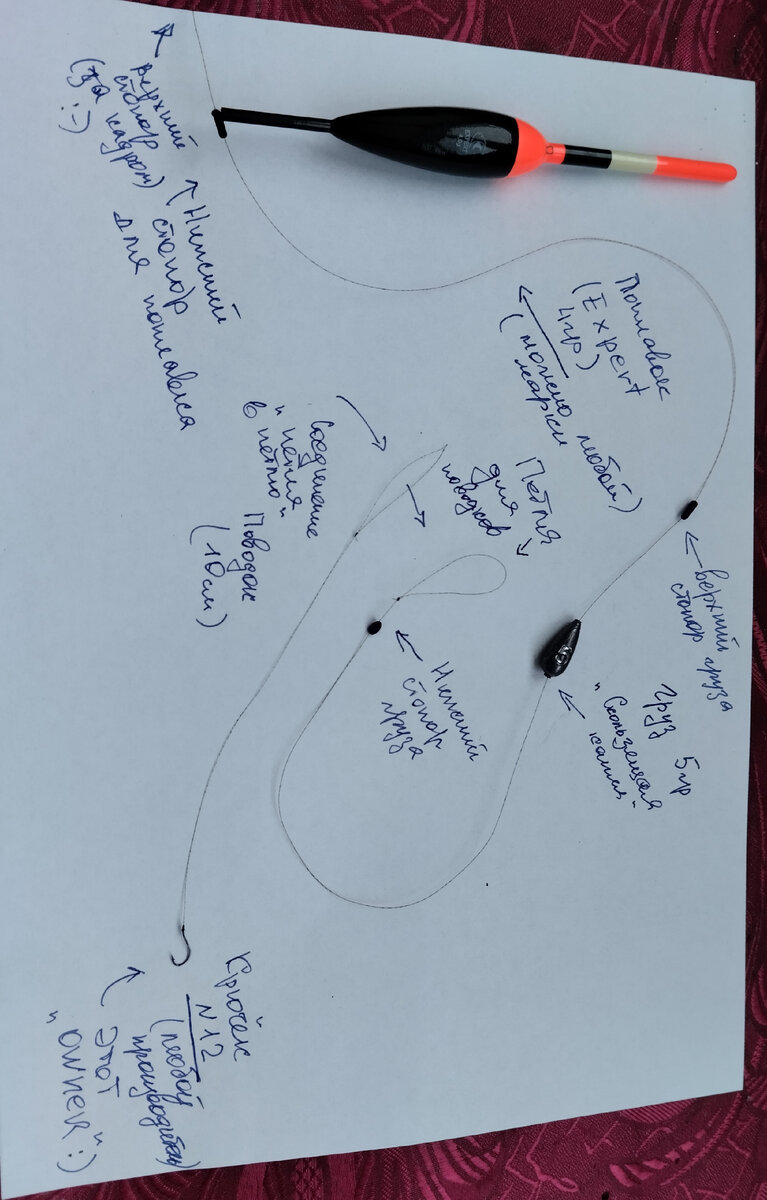 верхний
стопор
(за кадром)
:-)
Нижний
стопор
для поплавка
Поплавок
(Expert
4гр)
(можно любой
марки)
верхний
стопор груза
Груз 5гр
"Скользящая
капля"
5
Соединение
"петля
в петлю"
Поводок
(10см)
Петля
для
поводков
Нижний
стопор
груза
Крючек
N12
(любой
производитель)
этот
"OWNER" :)